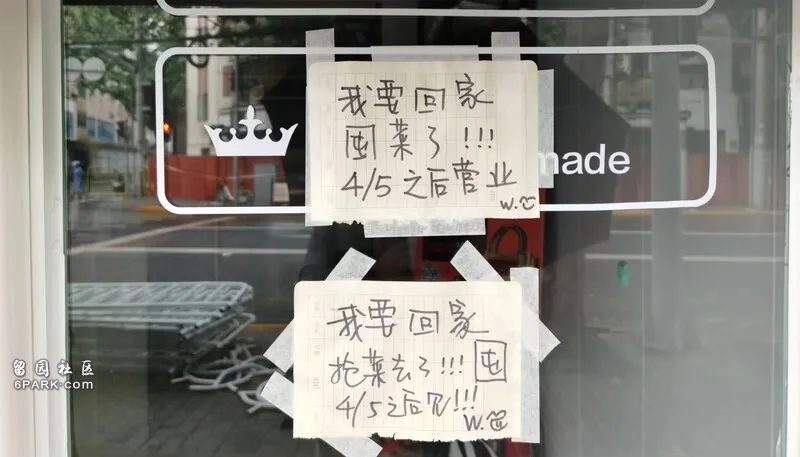 我要回家
囤菜了!!!
4/5之后营业
W.
made
我要回家
抢菜去了!!! 囤
4/5之后见!!!
W.
留园社区
6PARK.com